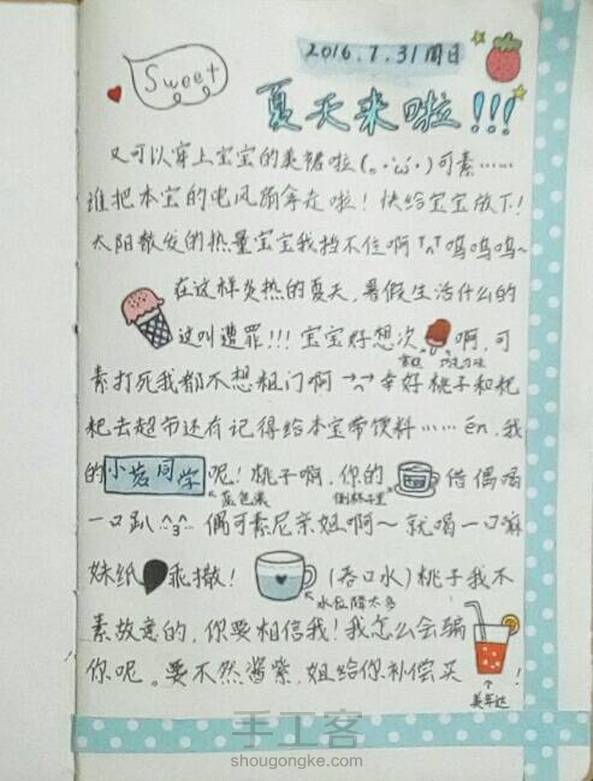 Sweet
2016.7.31周日
夏天来啦!!!
又可以穿上宝宝的美裙啦(｡･ω･)可素……
谁把本宝的电风扇拿走啦！快给宝宝放下！
太阳散发的热量宝宝我挡不住啊 T^T呜呜呜~
在这样炎热的夏天,暑假生活什么的
这叫遭罪!!!宝宝好想次 啊,可
雪糕 巧克力味
素打死我都不想粗门啊 →_→ 幸好桃子和粑
粑去超市还有记得给本宝带饮料……én,我
的小茗同学呢！桃子啊,你的 借偶喝
蓝包装 倒杯子里
一口趴 ^3^ 偶可素尼亲姐啊~ 就喝一口嘛
妹纸 乖撒！ (吞口水)桃子我不
水位降太多
素故意的,你要相信我！我怎么会骗
你呢。要不然酱紫,姐给你补偿买 !
美年达
手工客
shougongke.com